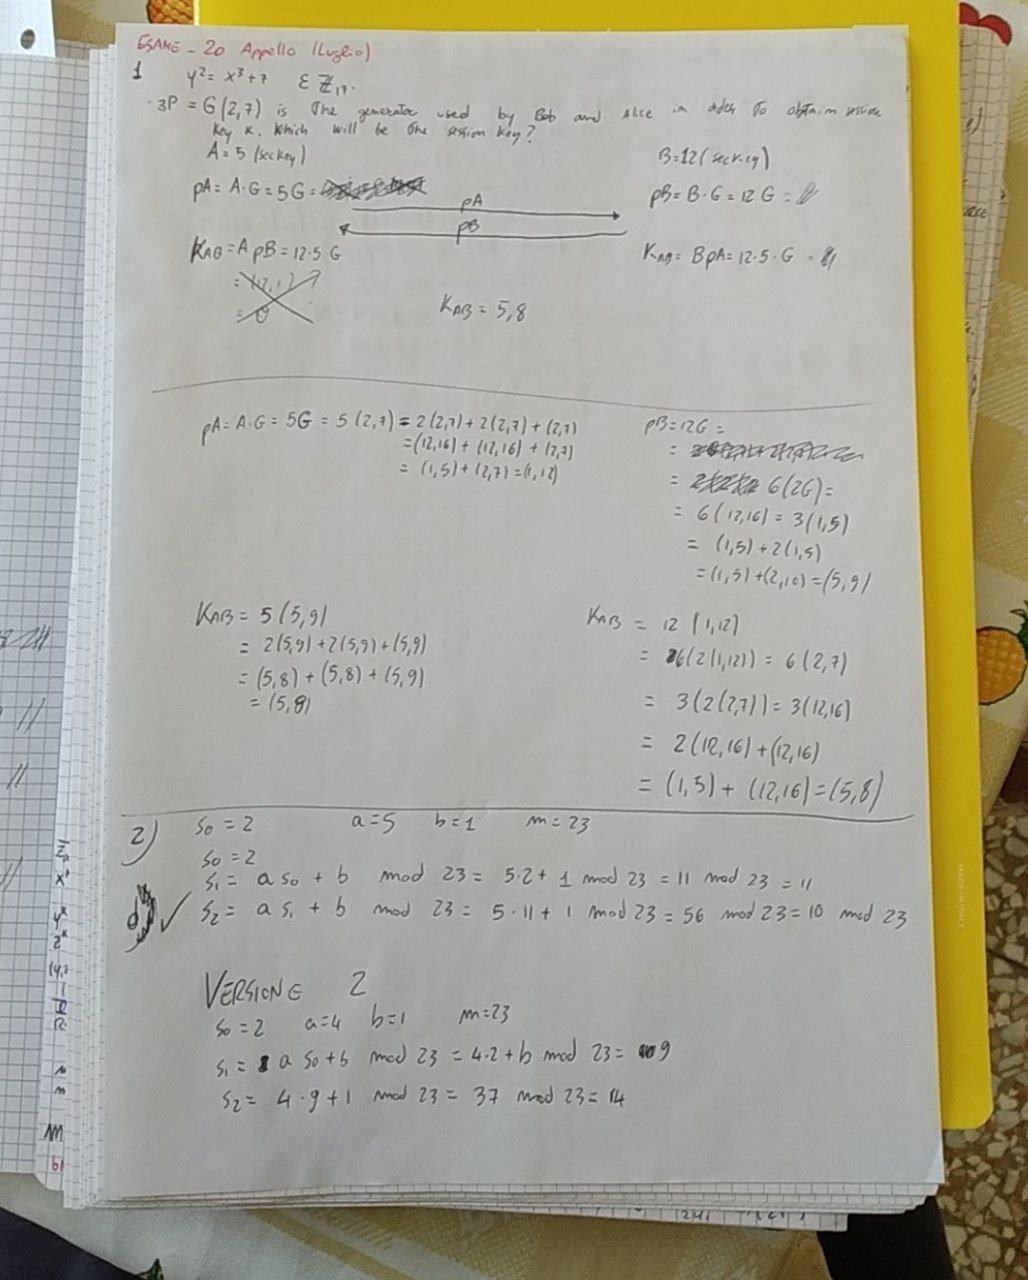 ESAME - 2o Appello (Luglio)
1 y² = x³+7 ∈ ℤ₁₇.
·3P = G(2,7) is the generator used by Bob and Alice in order to obtain session
key K. Which will be the session key?
A = 5 (sec key) B=12 (sec key)
pA = A·G = 5G = pB = B·G = 12 G =
pA
pB
KAB = A pB = 12·5 G KAB = BpA = 12·5·G =
= (12,1)
= 0
KAB = 5,8
pA = A·G = 5G = 5(2,7) = 2(2,7)+2(2,7)+(2,7) pB=12G =
=(12,16)+(12,16)+(2,7) =
= (1,5)+(2,7)=(1,12) = 6(2G)=
= 6(12,16) = 3(1,5)
= (1,5)+2(1,5)
=(1,5)+(2,10)=(5,9)
KAB = 5(5,9) KAB = 12(1,12)
= 2(5,9)+2(5,9)+(5,9) = 6(2(1,12)) = 6(2,7)
= (5,8)+(5,8)+(5,9) = 3(2(2,7))=3(12,16)
= (5,8) = 2(12,16)+(12,16)
= (1,5)+(12,16)=(5,8)
2) s0 = 2 a=5 b=1 m=23
s0 = 2
s1 = a s0 + b mod 23 = 5·2+1 mod 23 = 11 mod 23 = 11
✓ s2 = a s1 + b mod 23 = 5·11+1 mod 23 = 56 mod 23 = 10 mod 23
VERSIONE 2
s0 = 2 a=4 b=1 m=23
s1 = a s0+b mod 23 = 4·2+b mod 23 = 9
s2 = 4·9+1 mod 23 = 37 mod 23 = 14
MADE IN ITALY